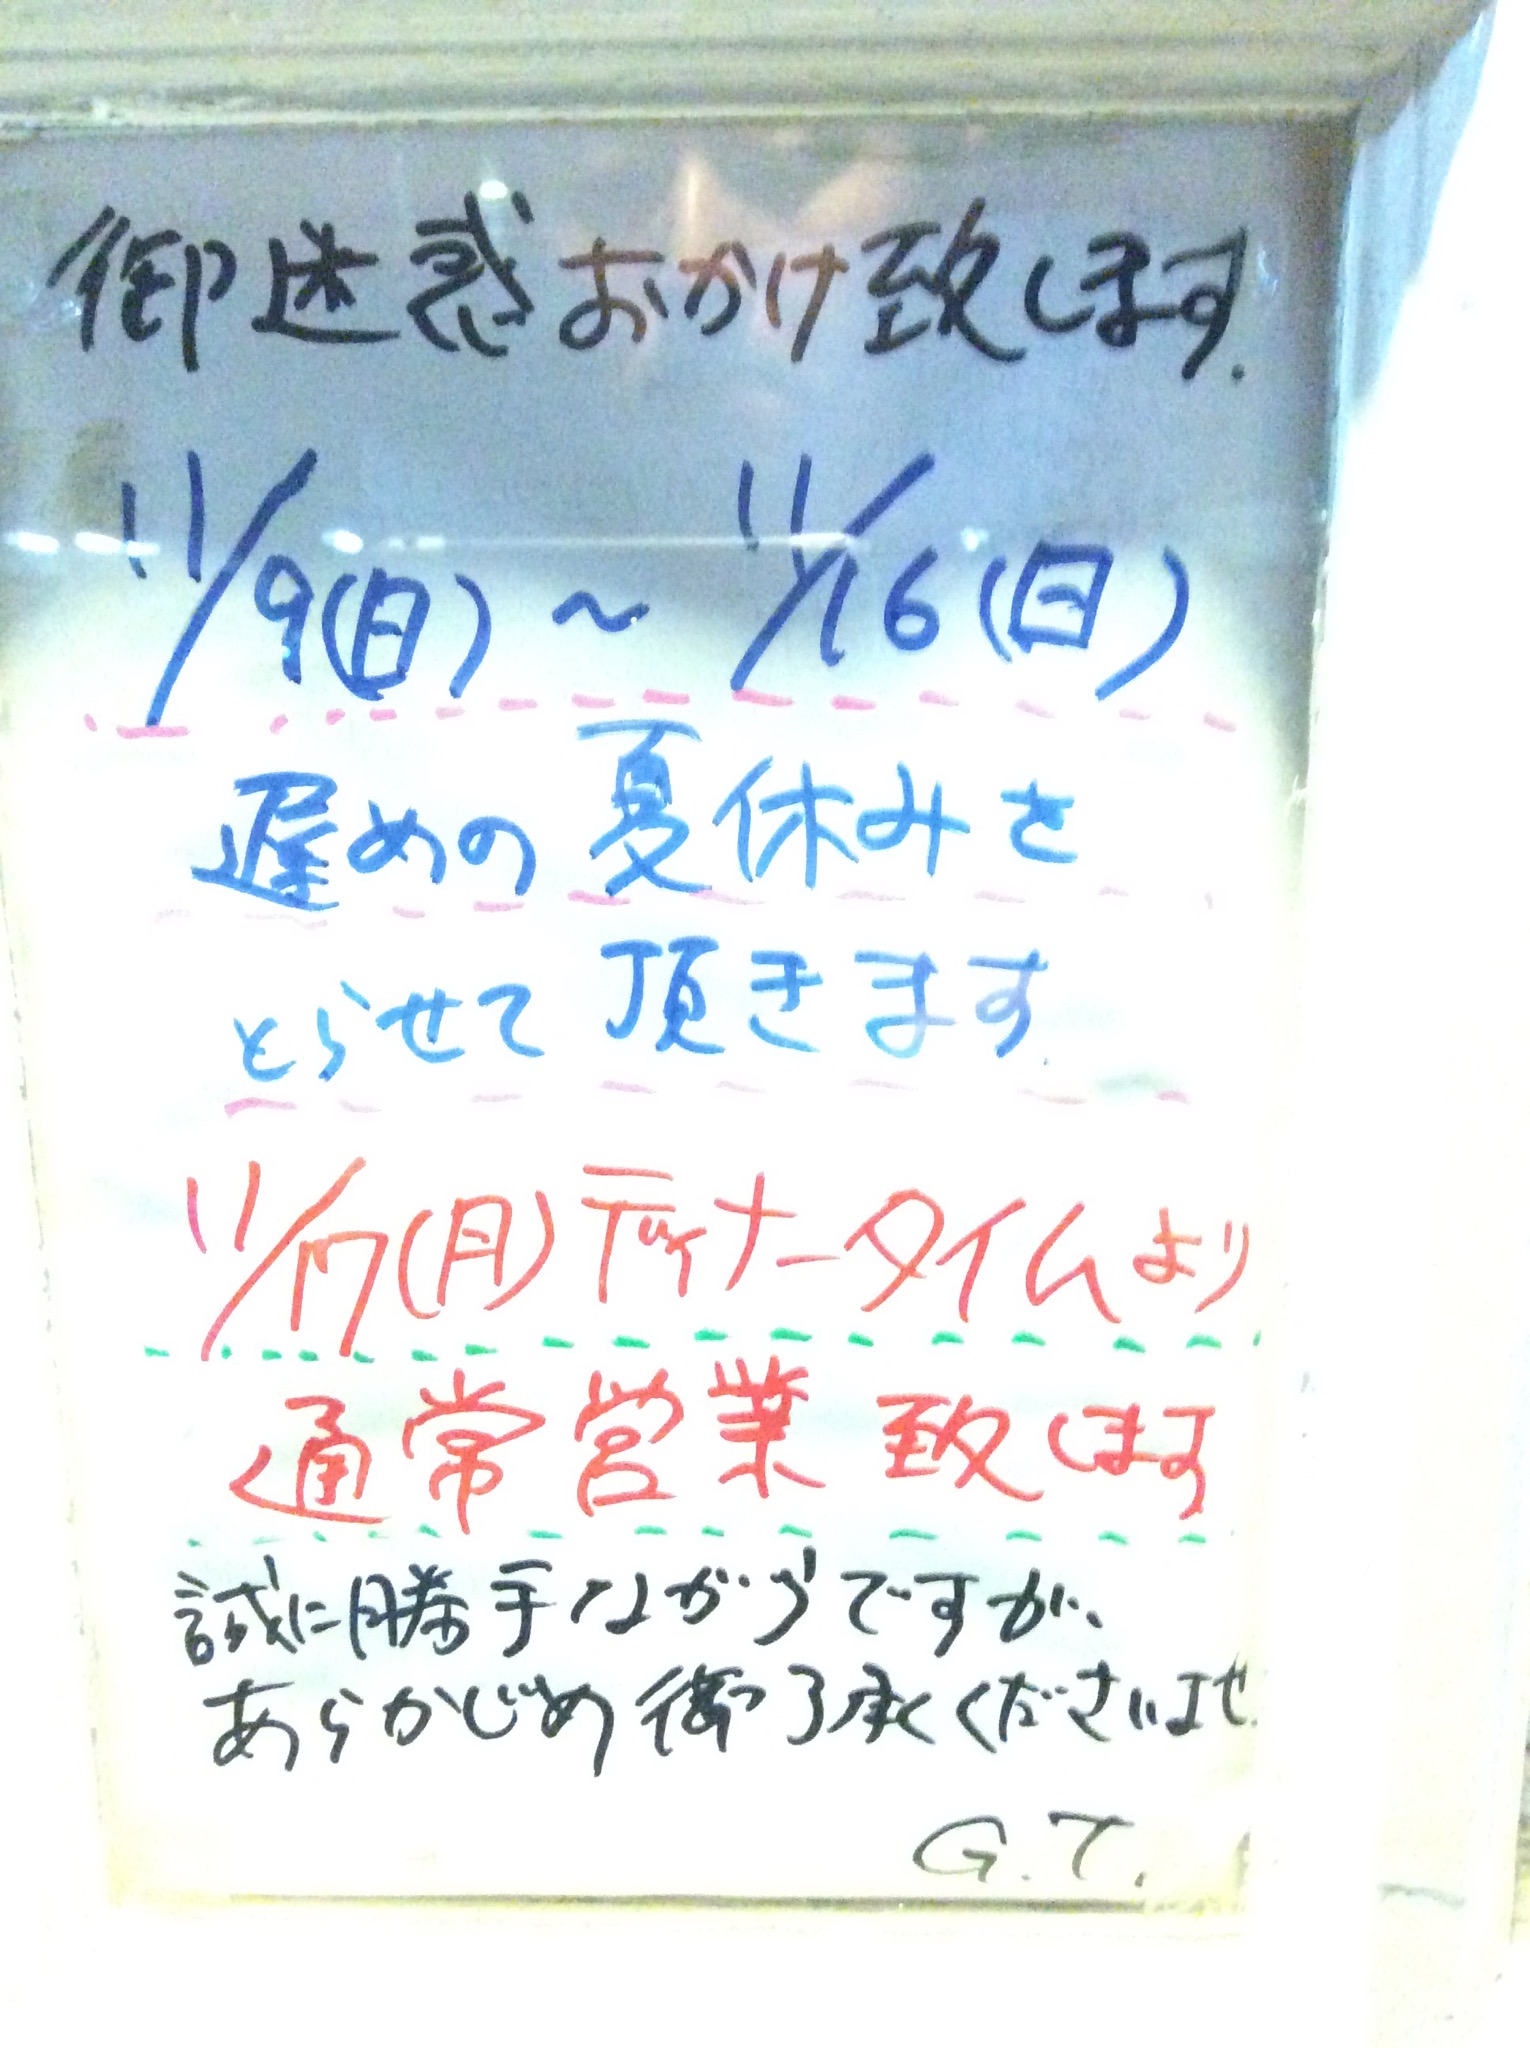 御迷惑おかけ致します.
11/9(日)～11/16(日)
遅めの夏休みを
とらせて頂きます.
11/17(月)ディナータイムより
通常営業致します
誠に勝手ながらですが、
あらかじめ御了承くださいませ.
G.T.